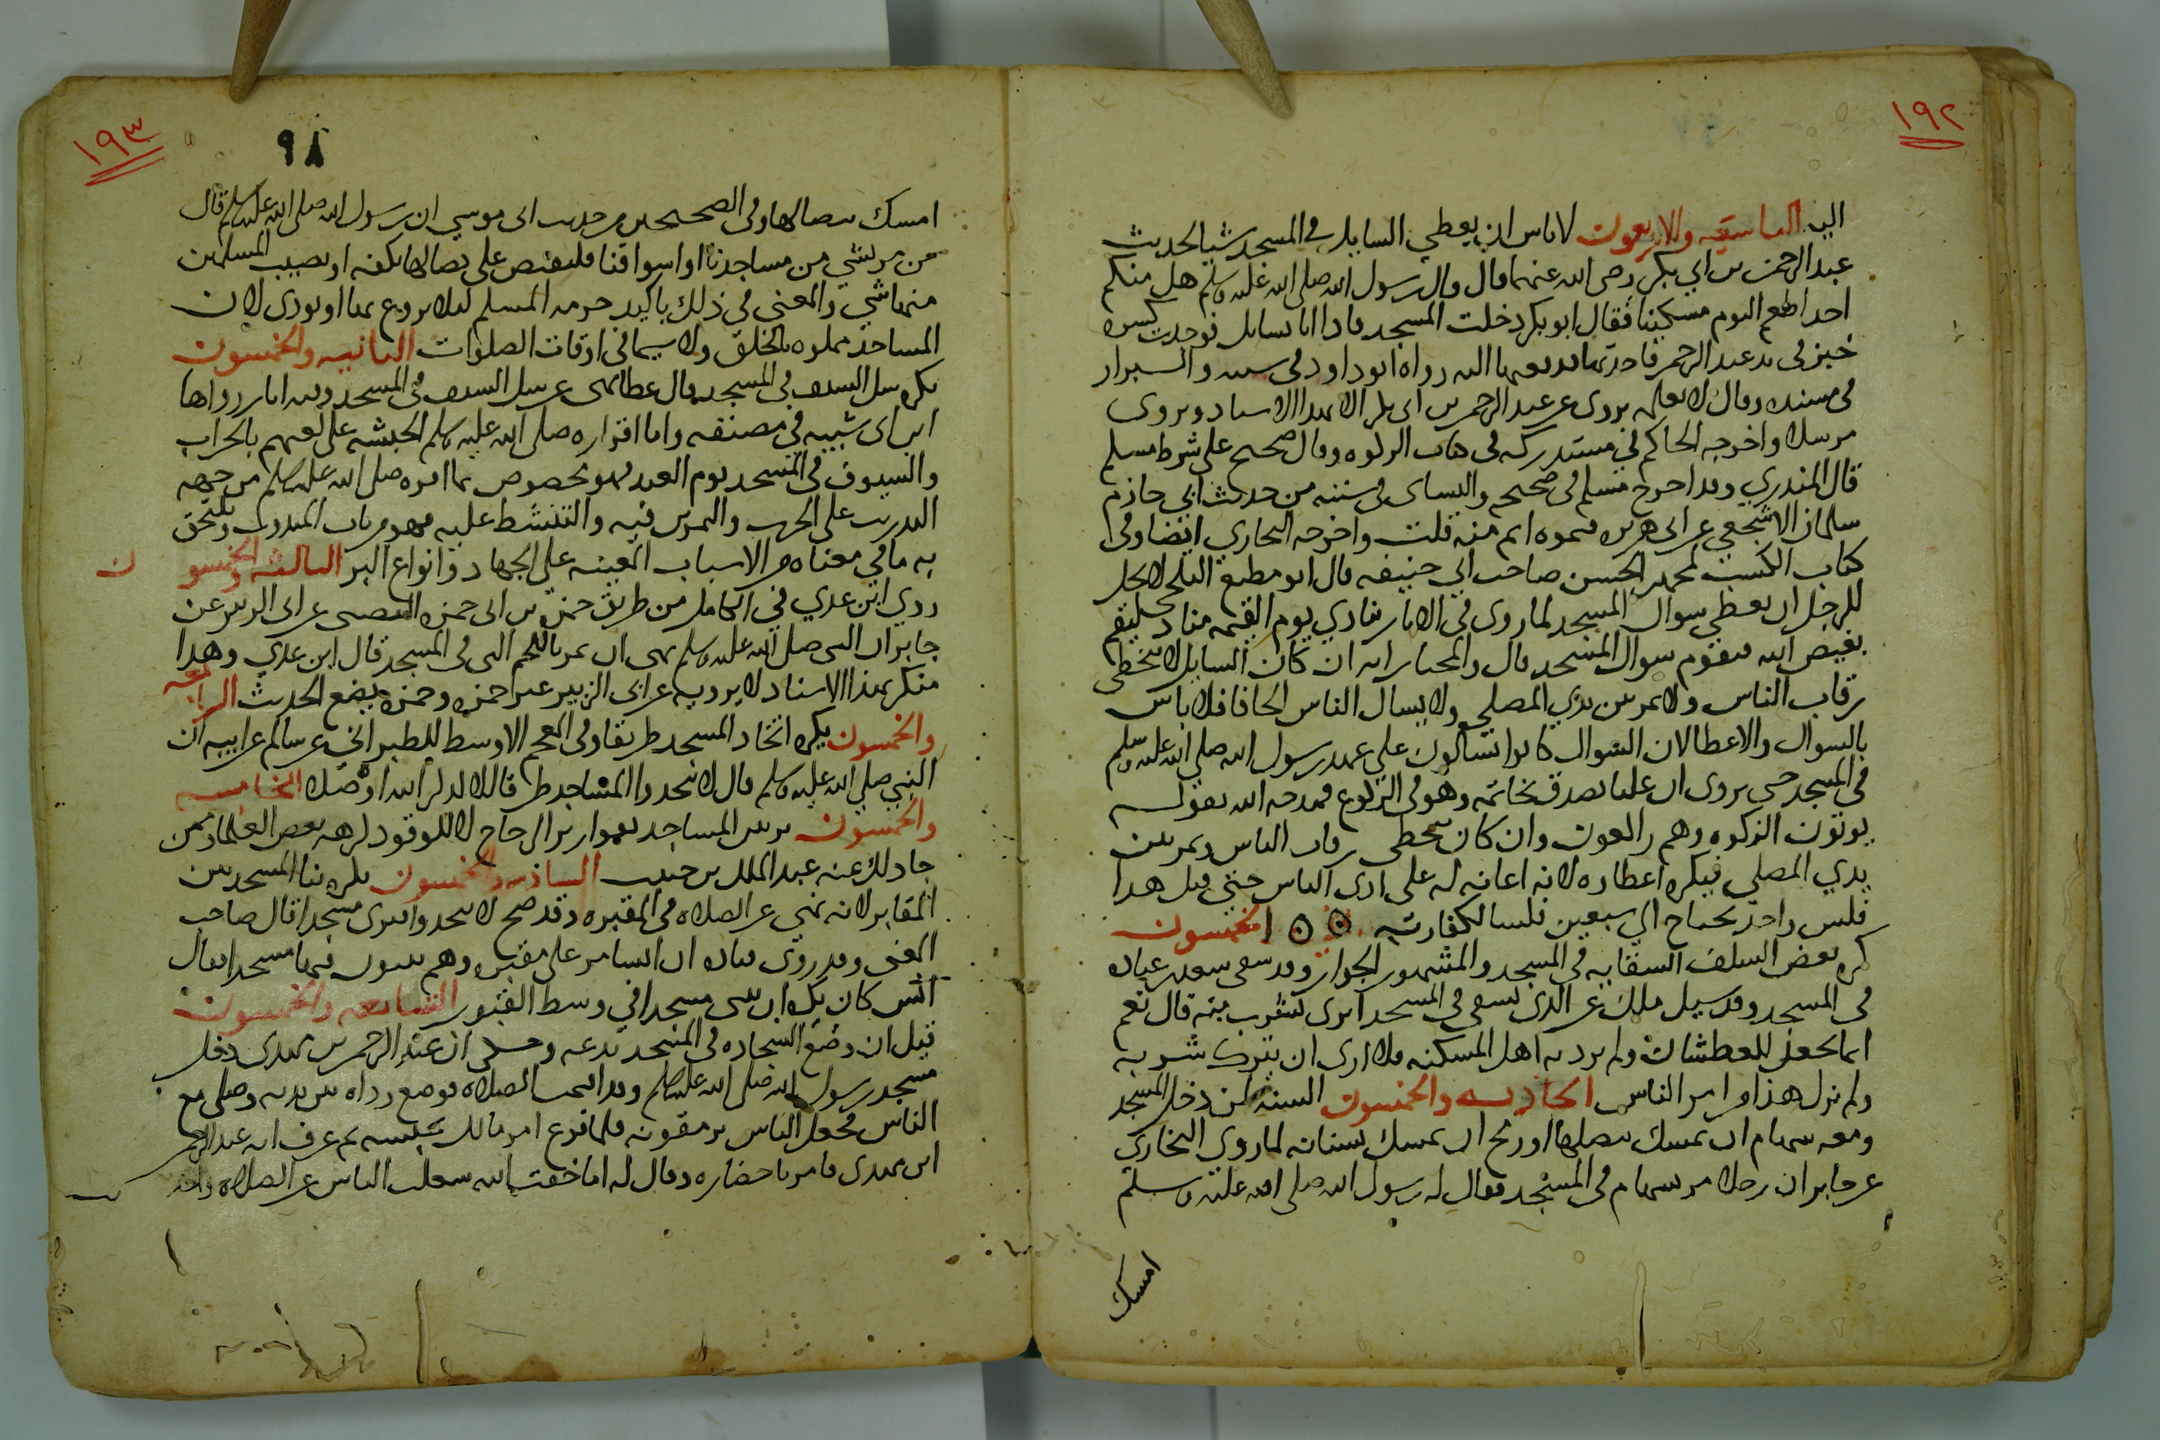 ١٩٢
اليه التاسعة والاربعون لا باس ان يعطي السايل في المسجد شيا لحديث
عبد الرحمن بن ابي بكر رضي الله عنهما قال قال رسول الله صلى الله عليه وسلم هل منكم
احد اطعم اليوم مسكينا فقال ابو بكر دخلت المسجد فاذا انا بسايل فوجدت كسرة
خبز في يد عبد الرحمن فاخذتها فدفعتها اليه رواه ابو داود في سننه والبزار
في مسنده وقال لا نعلمه يروى عن عبد الرحمن بن ابي بكر الا بهذا الاسناد وروى
مرسلا واخرجه الحاكم في مستدركه في كتاب الزكوه وقال صحيح على شرط مسلم
قال المنذري وقد اخرج مسلم في صحيحه والنساى في سننه من حديث ابي حازم
سلمان الاشجعي عن ابي هريره بنحوه اتم منه قلت واخرجه البخاري ايضا وفي
كتاب الكسب لمحمد بن الحسن صاحب ابي حنيفه قال ابو مطيع البلخي لا يحل
للرجل ان يعطي سوال المسجد لما روى في الاثار ينادي يوم القيمه مناد ليقم
بغيض الله فيقوم سوال المسجد قال والمختار انه ان كان السايل لا يتخطى
رقاب الناس ولا يمر بين يدي المصلي ولا يسال الناس الحافا فلا باس
بالسوال والاعطا لان السوال كانوا يسالون على عهد رسول الله صلى الله عليه وسلم
في المسجد حتى يروى ان عليا تصدق بخاتمه وهو في الركوع فمدحه الله بقوله
يوتون الزكوه وهم راكعون وان كان يتخطى رقاب الناس ويمر بين
يدي المصلي فيكره اعطاوه لانه اعانه له على اذى الناس حتى قيل هذا
فلس واحد يحتاج الى سبعين فلسا لكفارته الخمسون
كره بعض السلف السقايه في المسجد والمشهور الجواز وقد سقى سعد بن عباده
في المسجد وقد سيل ملك عن الذى يسقى في المسجد اترى يشرب منه قال نعم
انما يجعل للعطشان ولم يرد به اهل المسكنه فلا ارى ان يترك شربه
ولم يزل هذا من امر الناس الحاديه والخمسون السنه لمن دخل المسجد
ومعه سهام ان يمسك بنصلها او رمح ان يمسك بسنانه لما روي البخاري
عن جابر ان رجلا مر بسهام في المسجد فقال له رسول الله صلى الله عليه وسلم
امسك
١٩٣
٩٨
امسك بنصالها وفي الصحيحين من حديث ابي موسي ان رسول الله صلى الله عليه وسلم قال
من مر بشي من مساجدنا او اسواقنا فليقبض على نصالها بكفه او يصيب المسلمين
منها شي والمعنى في ذلك تاكيد حرمه المسلم ليلا يروع بها او يوذى لان
المساجد مملوه بالخلق ولا سيما في اوقات الصلوات الثانيه والخمسون
يكره سل السيف في المسجد قال عطا نهى عن سل السيف في المسجد وفيه اثار رواها
ابن ابي شيبه في مصنفه واما اقراره صلى الله عليه وسلم الحبشه على لعبهم بالحراب
والسيوف في المسجد يوم العيد فهو مخصوص بما اقره صلى الله عليه وسلم من جهه
التدريب على الحرب والتمرن فيه والتنشط عليه فهو من باب المندوب ويلتحق
به ما في معناه من الاسباب المعينه على الجهاد وانواع البر الثالثه والخمسون
روي ابن عدي في الكامل من طريق حمزة بن ابي حمزه النصيبى عن ابي الزبير عن
جابر ان النبى صلى الله عليه وسلم نهى ان يمر باللحم النى في المسجد قال ابن عدي وهذا
منكر بهذا الاسناد لا يرويه عن ابى الزبير غير حمزه وحمزه يضع الحديث الرابعه
والخمسون يكره اتخاذ المسجد طريقا وفي المعجم الاوسط للطبراني عن سالم عن ابيه ان
النبي صلى الله عليه وسلم قال لا تتخذوا المساجد طرقا الا لذكر الله او صلاه الخامسه
والخمسون تزيين المساجد بقوارير الزجاج لا للوقود كرهه بعض العلما وممن
جا ذلك عنه عبد الملك بن حبيب السادسه والخمسون يكره بنا المسجد بين
المقابر لانه نهي عن الصلاه في المقبره وقد صح لا تتخذوا قبرى مسجدا قال صاحب
المغنى وقد روى قتاده ان انسا مر على مقبره وهم يبنون فيها مسجدا فقال
انس كان يكره ان يبنى مسجدا في وسط القبور السابعه والخمسون
قيل ان وضع السجاده في المسجد بدعه وحكى ان عبد الرحمن بن مهدى دخل
مسجد رسول الله صلى الله عليه وسلم وقد اقيمت الصلاه فوضع رداه بين يديه وصلى مع
الناس فجعل الناس يرمقونه فلما فرغ امر مالك بحبسه ثم عرف انه عبد الرحمن
ابن مهدى فامر باحضاره وقال له اما خفت الله شغلت الناس عن الصلاه